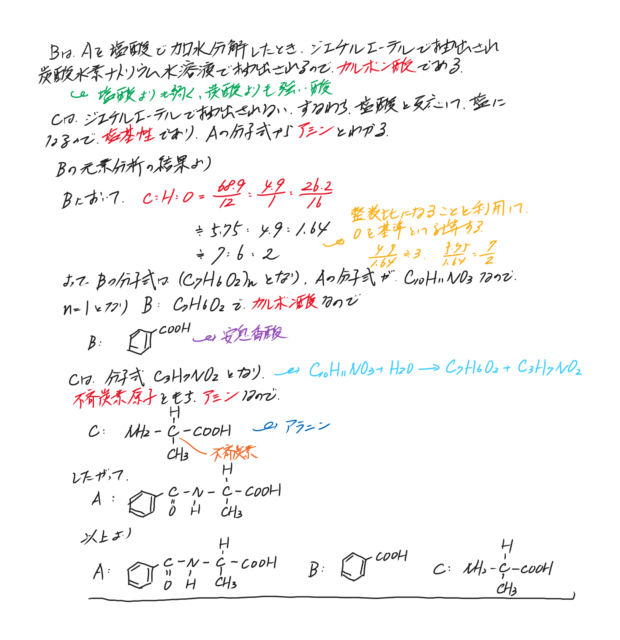 Bは、Aを塩酸で加水分解したとき、ジエチルエーテルで抽出され
炭酸水素ナトリウム水溶液で抽出されるので、カルボン酸である。
塩酸よりも弱く、炭酸よりも強い酸
Cは、ジエチルエーテルで抽出されない、すなわち、塩酸と反応して、塩に
なるので、塩基性であり、Aの分子式からアミンとわかる。
Bの元素分析の結果より
Bにおいて、C:H:O = 68.9/12 : 4.9/1 : 26.2/16
≒ 5.75 : 4.9 : 1.64
≒ 7 : 6 : 2
整数比になることを利用して、
Oを基準として計算する
4.9/1.64 ≒ 3, 5.75/1.64 = 7/2
よって、Bの分子式は (C7H6O2)n となり、Aの分子式が、C10H11NO3 なので、
n=1となり B: C7H6O2 で、カルボン酸なので
B: COOH 安息香酸
Cは、分子式 C3H7NO2 となり、 C10H11NO3 + H2O → C7H6O2 + C3H7NO2
不斉炭素原子をもち、アミンなので、
H
C: NH2 - C - COOH アラニン
CH3 不斉炭素
したがって、
H
A: C - N - C - COOH
O H CH3
以上より
H
A: C - N - C - COOH B: COOH C: NH2 - C - COOH
O H CH3 H CH3